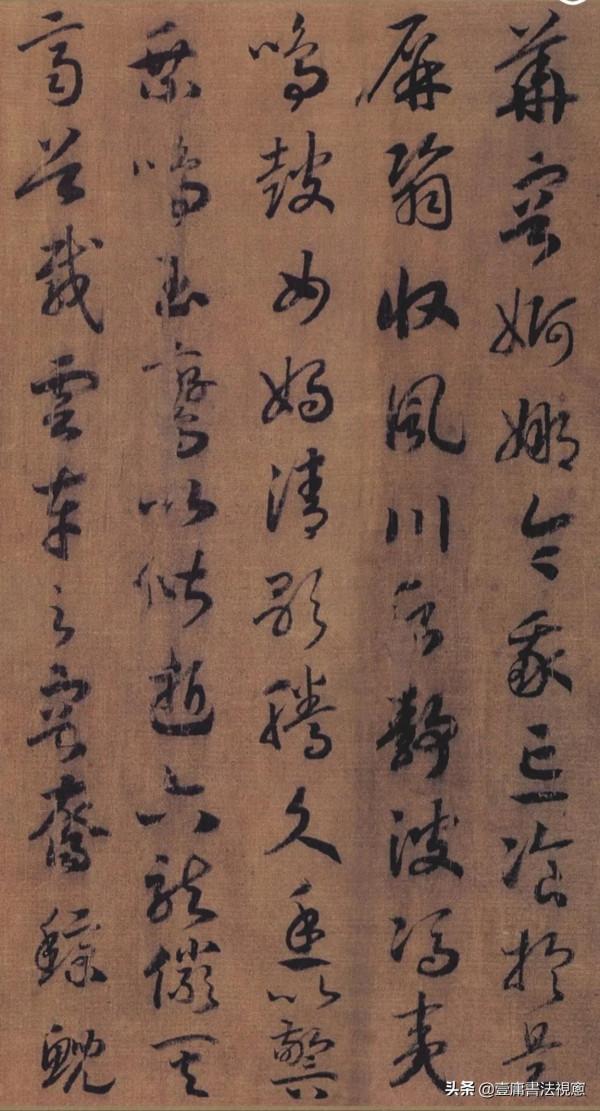 華容婀娜令我忘飡於是
屏翳收風川后靜波馮夷
鳴鼓女媧清歌騰文魚以警
乘鳴玉鸞以偕逝六龍儼其
齊首載雲車之容裔鯨鯢
头条 @壹庸書法視窓